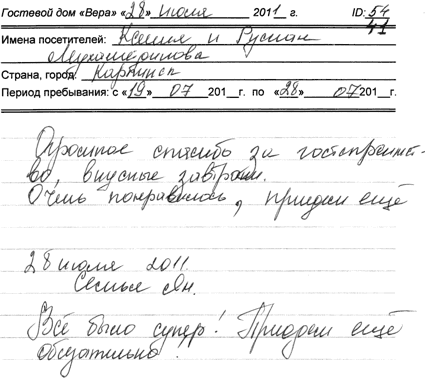 Гостевой дом «Вера» «28» июля 2011 г. ID: 54
41
Имена посетителей: Ксения и Руслан
Страна, город: Карпинск
Период пребывания: с «19» 07 201_г. по «28» 07 201_г.
Огромное спасибо за гостеприимст-
во, вкусные завтраки.
Очень понравилось, приедем ещё
28 июля 2011.
Семья
Всё было супер! Приедем ещё
обязательно.